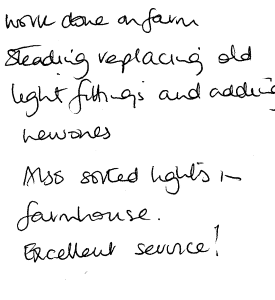 work done on farm
Steading replacing old
light fittings and adding
new ones
Also sorted lights in
farmhouse.
Excellent service!